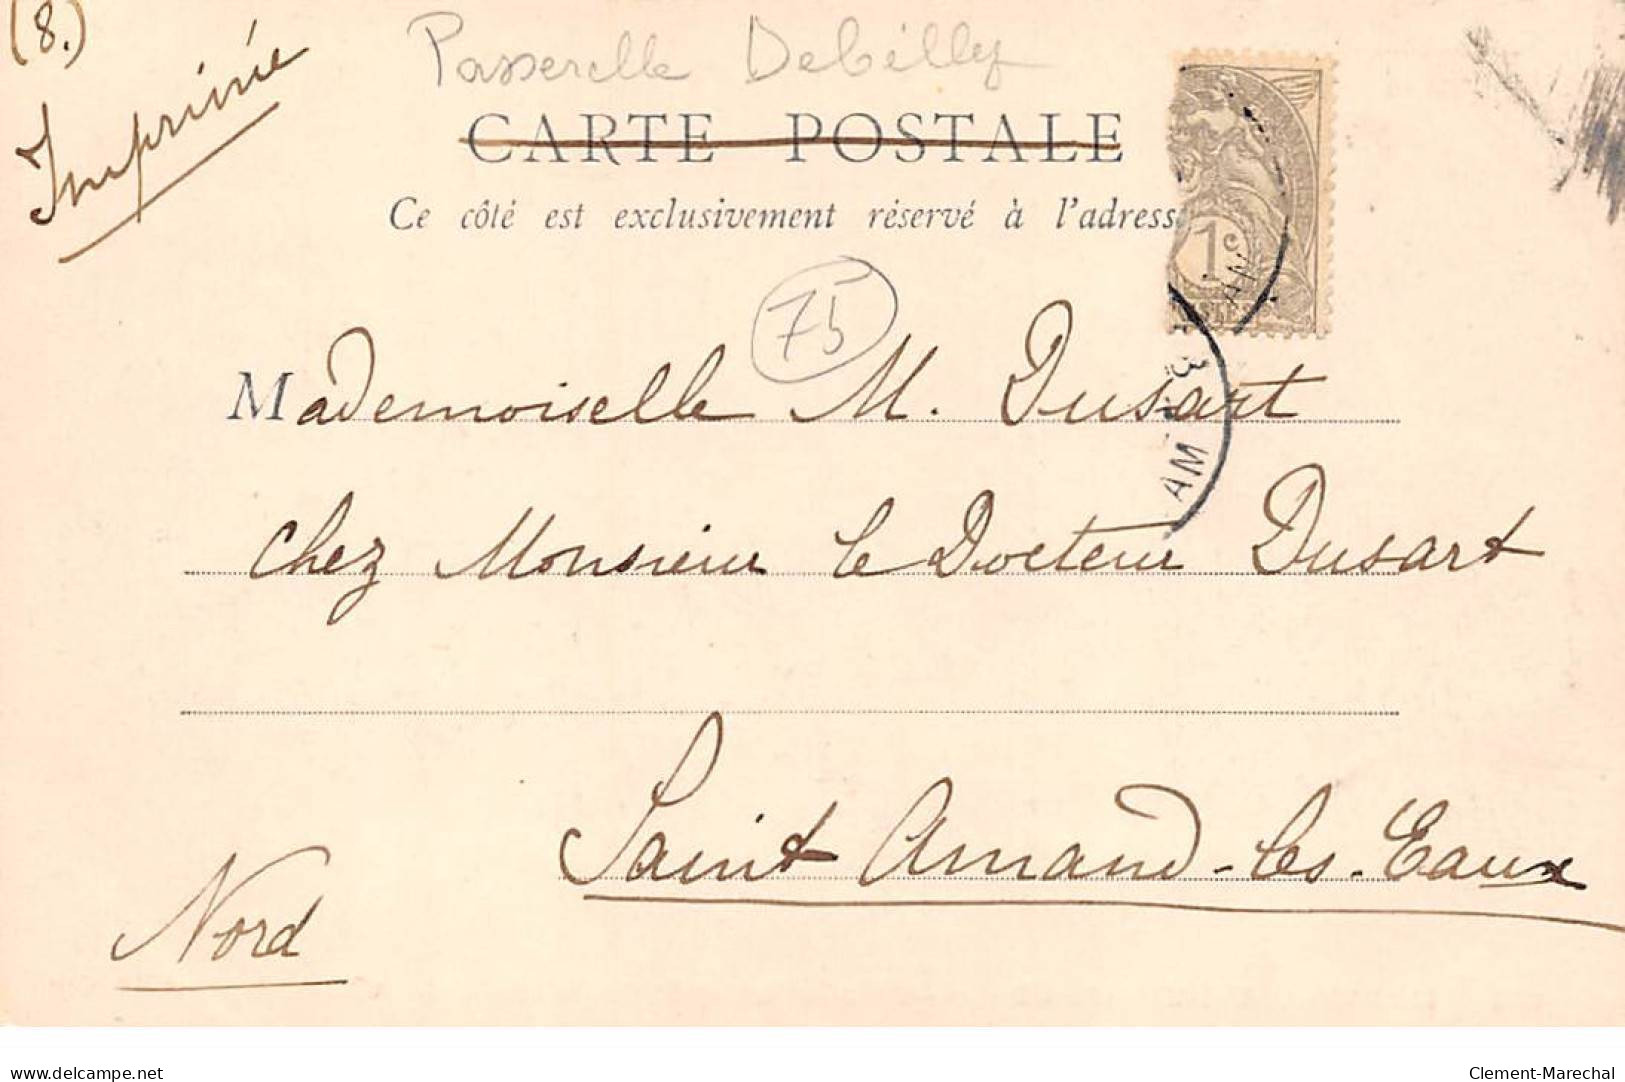 (8.)
Imprimé
Passerelle Debilly
CARTE POSTALE
Ce côté est exclusivement réservé à l'adresse
1c
75
Mademoiselle M. Dusart
AM
chez Monsieur le Docteur Dusart
Saint Amand-les-Eaux
Nord
delcampe.net
Clement-Marechal